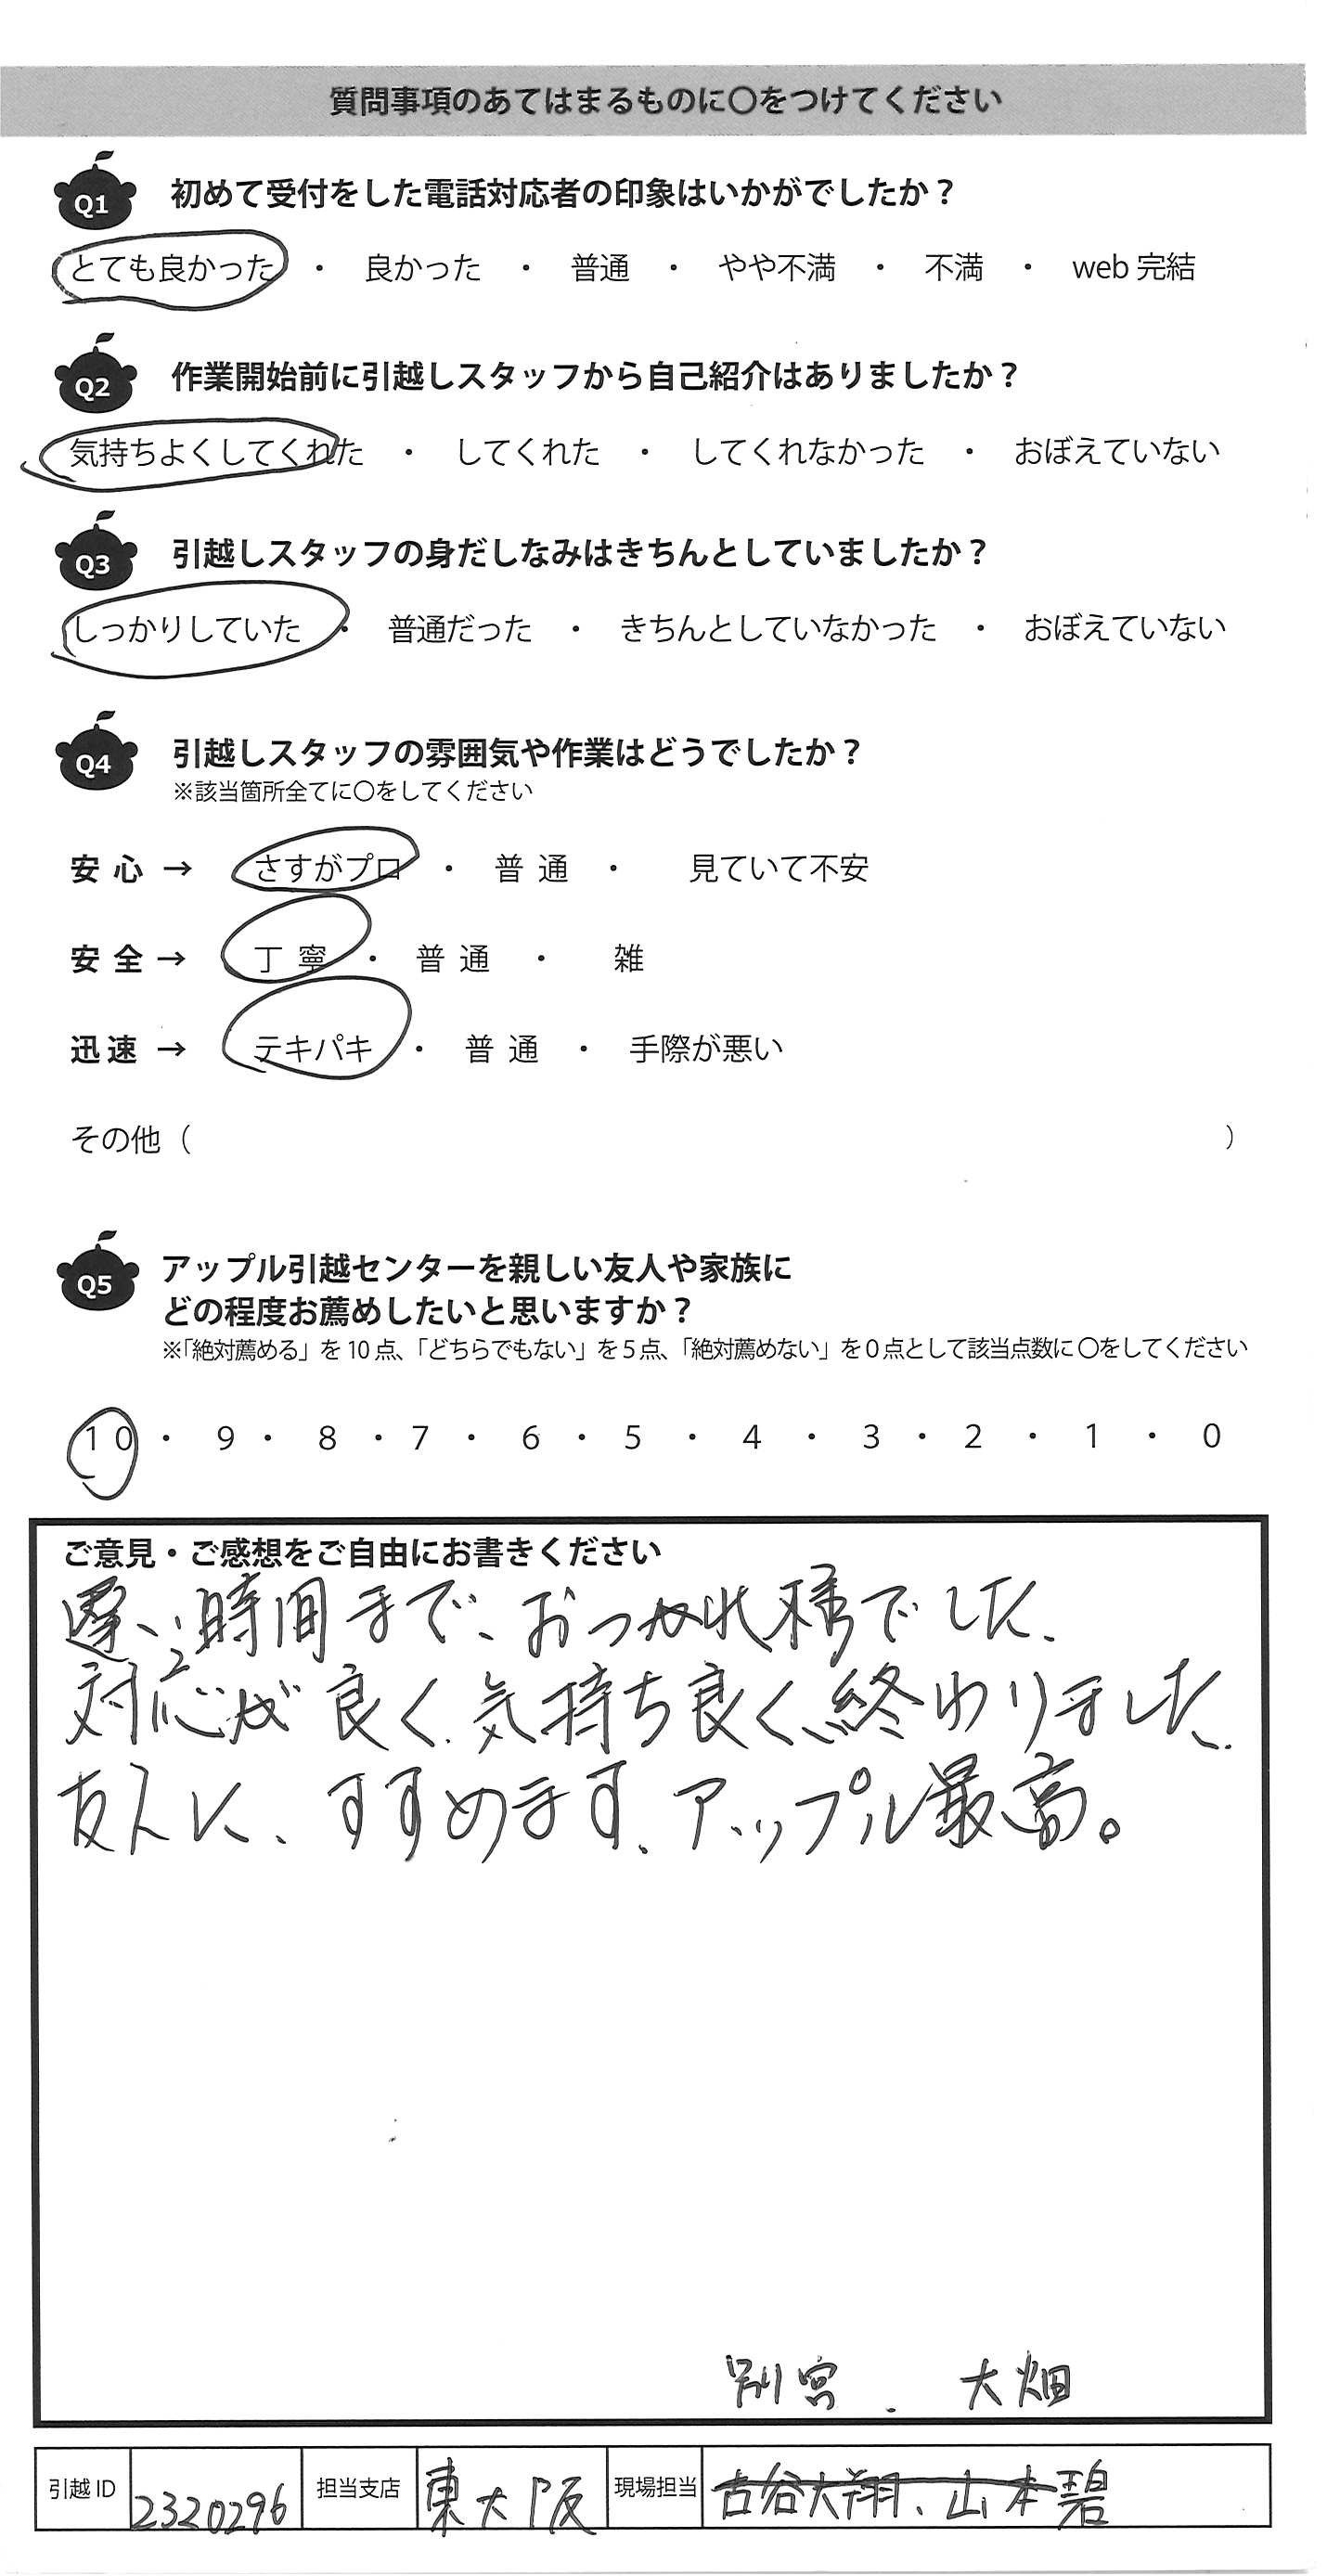 質問事項のあてはまるものに〇をつけてください
Q1 初めて受付をした電話対応者の印象はいかがでしたか？
とても良かった ・ 良かった ・ 普通 ・ やや不満 ・ 不満 ・ web 完結
Q2 作業開始前に引越しスタッフから自己紹介はありましたか？
気持ちよくしてくれた ・ してくれた ・ してくれなかった ・ おぼえていない
Q3 引越しスタッフの身だしなみはきちんとしていましたか？
しっかりしていた ・ 普通だった ・ きちんとしていなかった ・ おぼえていない
Q4 引越しスタッフの雰囲気や作業はどうでしたか？
※該当箇所全てに〇をしてください
安心 → さすがプロ ・ 普通 ・ 見ていて不安
安全 → 丁寧 ・ 普通 ・ 雑
迅速 → テキパキ ・ 普通 ・ 手際が悪い
その他（ ）
Q5 アップル引越センターを親しい友人や家族に
どの程度お薦めしたいと思いますか？
※「絶対薦める」を 10 点、「どちらでもない」を 5 点、「絶対薦めない」を 0 点として該当点数に 〇をしてください
10 ・ 9 ・ 8 ・ 7 ・ 6 ・ 5 ・ 4 ・ 3 ・ 2 ・ 1 ・ 0
ご意見・ご感想をご自由にお書きください
遅い時間まで、おつかれ様でした、
対応が良く、気持ち良く、終わりました、
友人に、すすめます、アップル最高。
別宮 . 大畑
引越 ID 2320296 担当支店 東大阪 現場担当 古谷大翔、山本碧